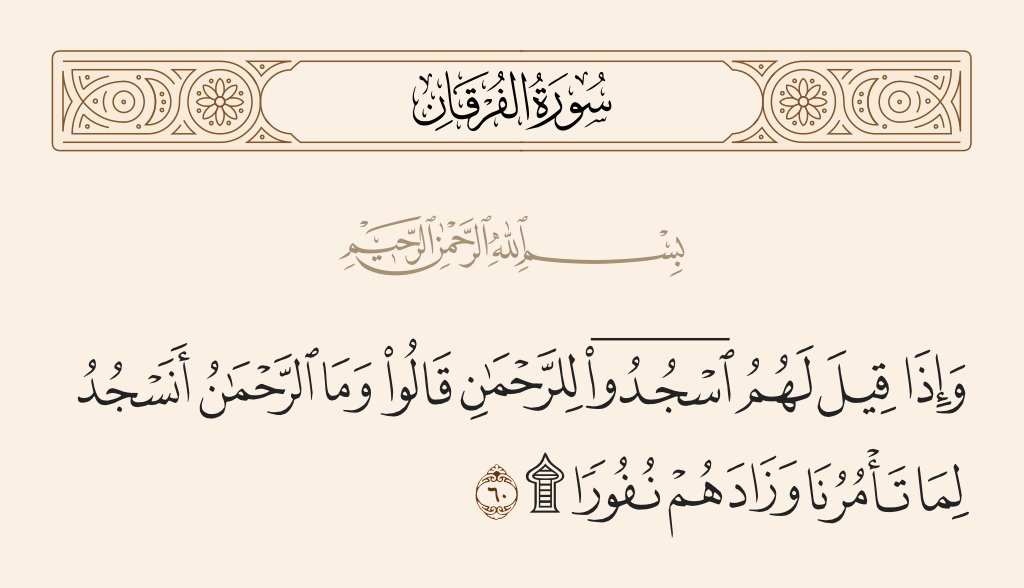 سُورَةُ الفُرْقَانِ
بِسْمِ ٱللَّهِ ٱلرَّحْمَٰنِ ٱلرَّحِيمِ
وَإِذَا قِيلَ لَهُمُ ٱسْجُدُوا۟ لِلرَّحْمَٰنِ قَالُوا۟ وَمَا ٱلرَّحْمَٰنُ أَنَسْجُدُ
لِمَا تَأْمُرُنَا وَزَادَهُمْ نُفُورًا ۩ ٦٠